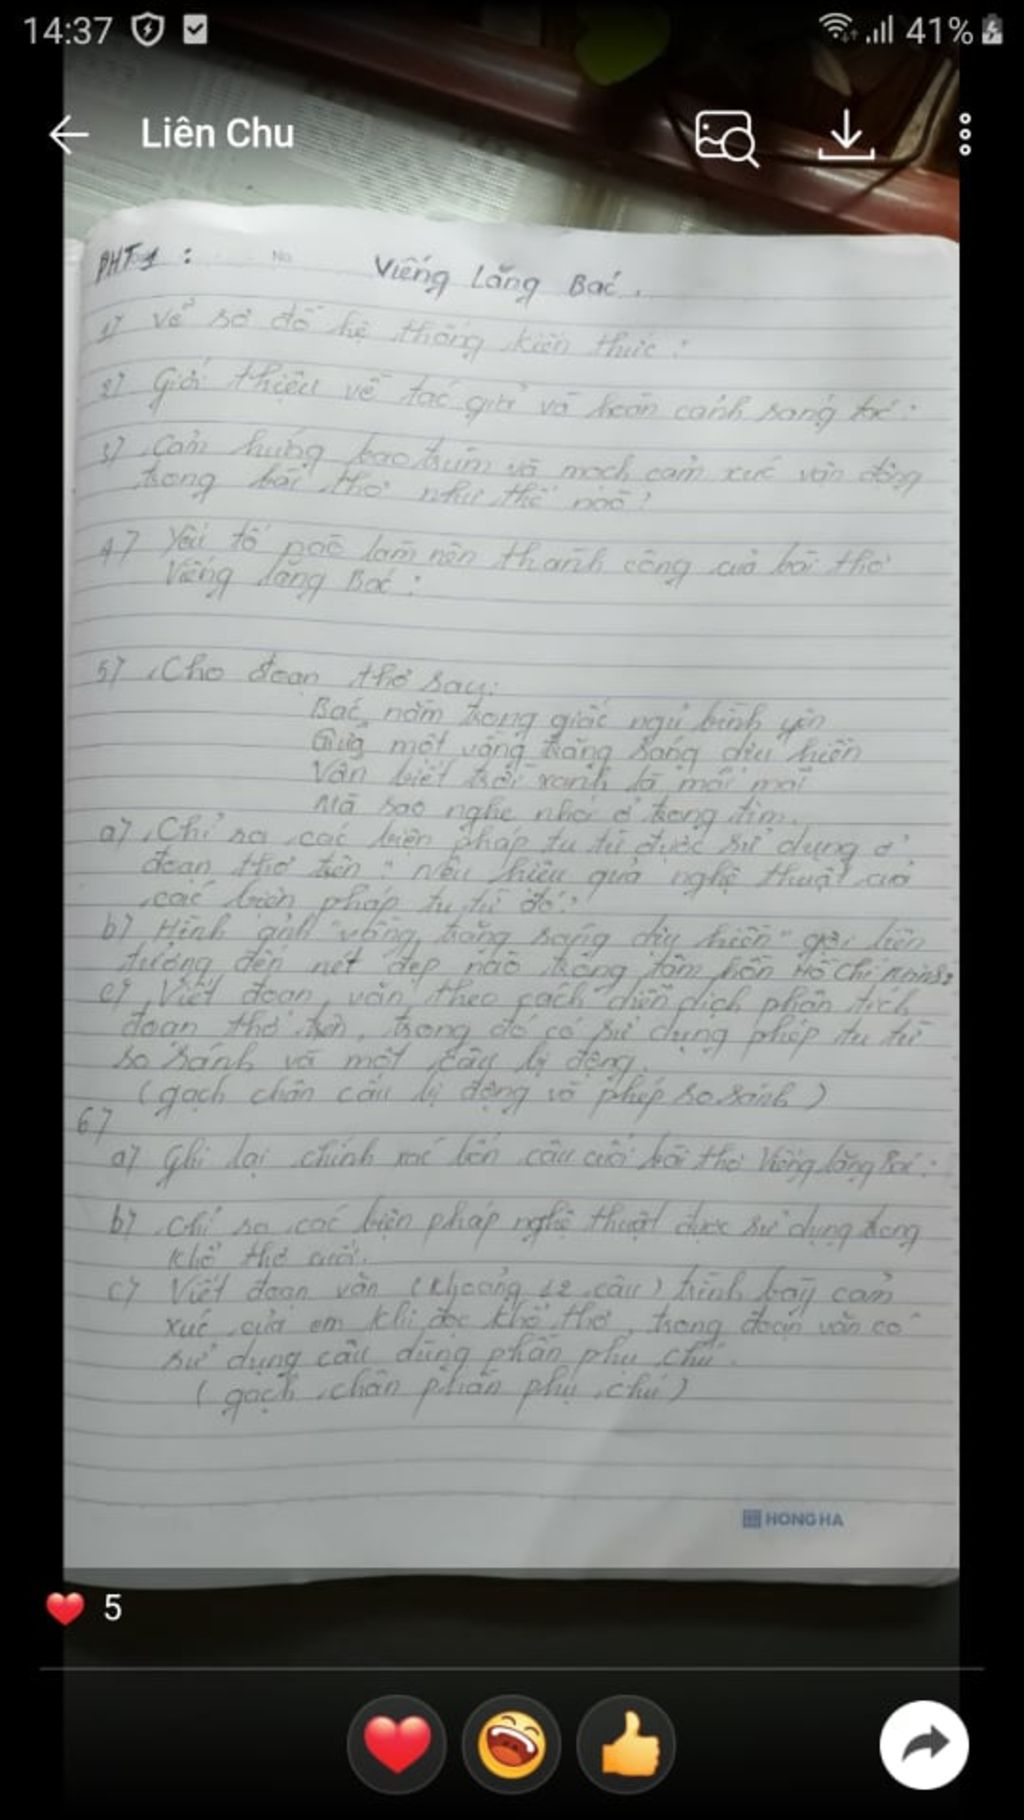 14:37 41%
Liên Chu
PHT 1 : No Viếng Lăng Bác.
1) Vẽ sơ đồ hệ thống kiến thức :
2) Giới thiệu về tác giả và hoàn cảnh sáng tác :
3) Cảm hứng bao trùm và mạch cảm xúc vận động
trong bài thơ như thế nào?
4) Yếu tố nào làm nên thành công của bài thơ
Viếng lăng Bác :
5) Cho đoạn thơ sau:
Bác nằm trong giấc ngủ bình yên
Giữa một vầng trăng sáng dịu hiền
Vẫn biết trời xanh là mãi mãi
Mà sao nghe nhói ở trong tim.
a) Chỉ ra các biện pháp tu từ được sử dụng ở
đoạn thơ trên : nêu hiệu quả nghệ thuật của
các biện pháp tu từ đó?
b) Hình ảnh "vầng trăng sáng dịu hiền" gợi liên
tưởng đến nét đẹp nào trong tâm hồn Hồ Chí Minh?
c) Viết đoạn văn theo cách diễn dịch phân tích
đoạn thơ trên, trong đó có sử dụng phép tu từ
so sánh và một câu bị động.
(gạch chân câu bị động và phép so sánh)
6)
a) Ghi lại chính xác bốn câu cuối bài thơ Viếng lăng Bác :
b) Chỉ ra các biện pháp nghệ thuật được sử dụng trong
khổ thơ cuối.
c) Viết đoạn văn (khoảng 12 câu) trình bày cảm
xúc của em khi đọc khổ thơ, trong đoạn văn có
sử dụng câu dùng phần phụ chú.
(gạch chân phần phụ chú)
HONG HA
5